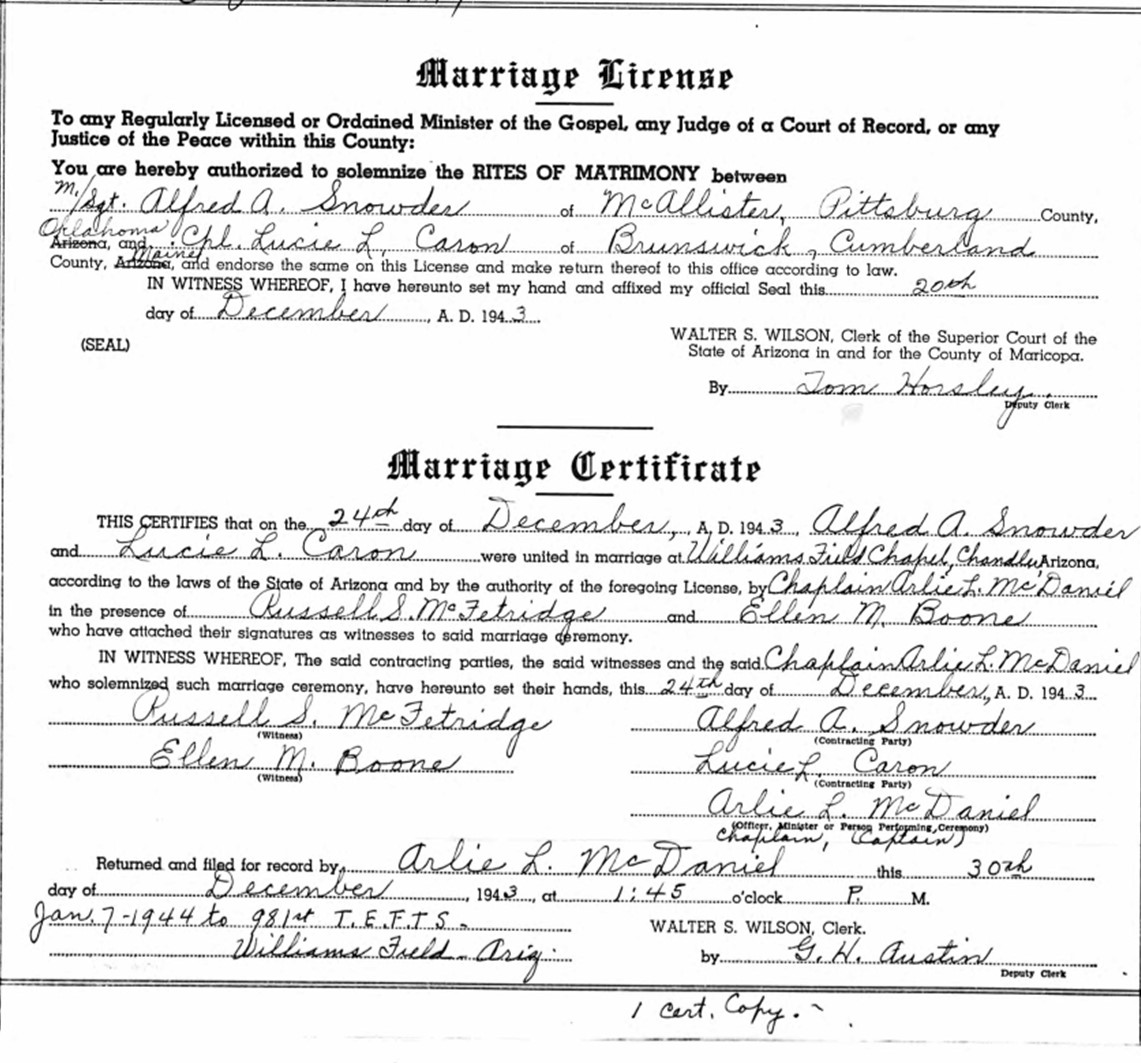 Marriage License
To any Regularly Licensed or Ordained Minister of the Gospel, any Judge of a Court of Record, or any
Justice of the Peace within this County:
You are hereby authorized to solemnize the RITES OF MATRIMONY between
M/Sgt. Alfred A. Snowder of McAllister, Pittsburg County,
Oklahoma
Arizona, and Cpl. Lucie L. Caron of Brunswick, Cumberland
Maine
County, Arizona, and endorse the same on this License and make return thereof to this office according to law.
IN WITNESS WHEREOF, I have hereunto set my hand and affixed my official Seal this 20th
day of December, A. D. 1943.
WALTER S. WILSON, Clerk of the Superior Court of the
(SEAL)
State of Arizona in and for the County of Maricopa.
By Tom Horsley
Deputy Clerk
Marriage Certificate
THIS CERTIFIES that on the 24th day of December, A. D. 1943, Alfred A. Snowder
and Lucie L. Caron were united in marriage at Williams Field Chapel, Chandler Arizona,
according to the laws of the State of Arizona and by the authority of the foregoing License, by Chaplain Arlie L. McDaniel
in the presence of Russell S. McFetridge and Ellen M. Boone
who have attached their signatures as witnesses to said marriage ceremony.
IN WITNESS WHEREOF, The said contracting parties, the said witnesses and the said Chaplain Arlie L. McDaniel
who solemnized such marriage ceremony, have hereunto set their hands, this 24th day of December, A. D. 1943.
Russell S. McFetridge Alfred A. Snowder
(Witness) (Contracting Party)
Ellen M. Boone Lucie L. Caron
(Witness) (Contracting Party)
Arlie L. McDaniel
(Officer, Minister or Person Performing Ceremony)
Chaplain, (Captain)
Returned and filed for record by Arlie L. McDaniel this 30th
day of December, 1943, at 1:45 o'clock P. M.
Jan. 7-1944 to 981st T.E.F.T.S. WALTER S. WILSON, Clerk.
Williams Field - Ariz. by G. H. Austin
Deputy Clerk
1 cert. Copy. -